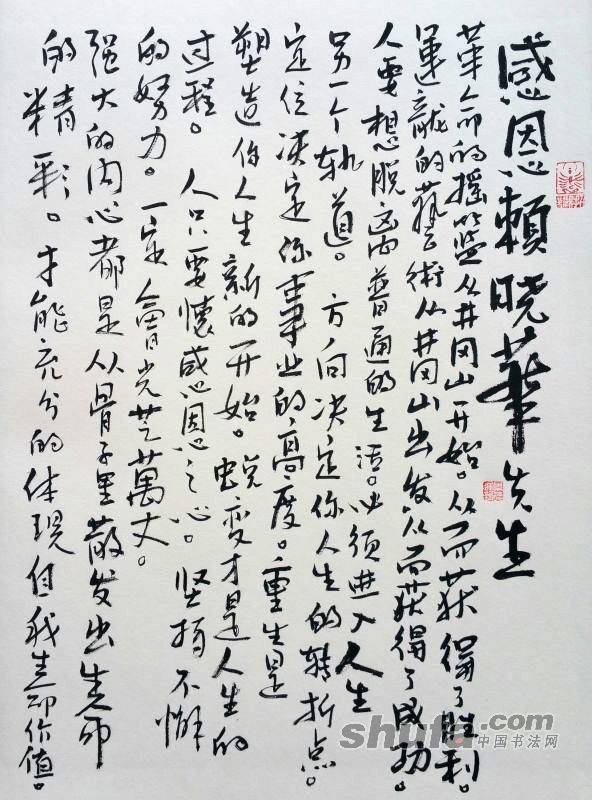 感恩賴晓華先生
革命的摇篮从井冈山开始。从而获得了胜利。
龍的藝術从井冈山出发从而获得了成功。
人要想脱离普通的生活。必须进入人生
另一个轨道。方向决定你人生的转折点。
定位决定你事业的高度。重生是
塑造你人生新的开始。蜕变才是人生的
过程。人只要懷感恩之心。坚持不懈
的努力。一定會光芒萬丈。
强大的内心都是从骨子里散发出生命
的精彩。才能充分的体现自我生命价值。
shufa.com
中国书法网